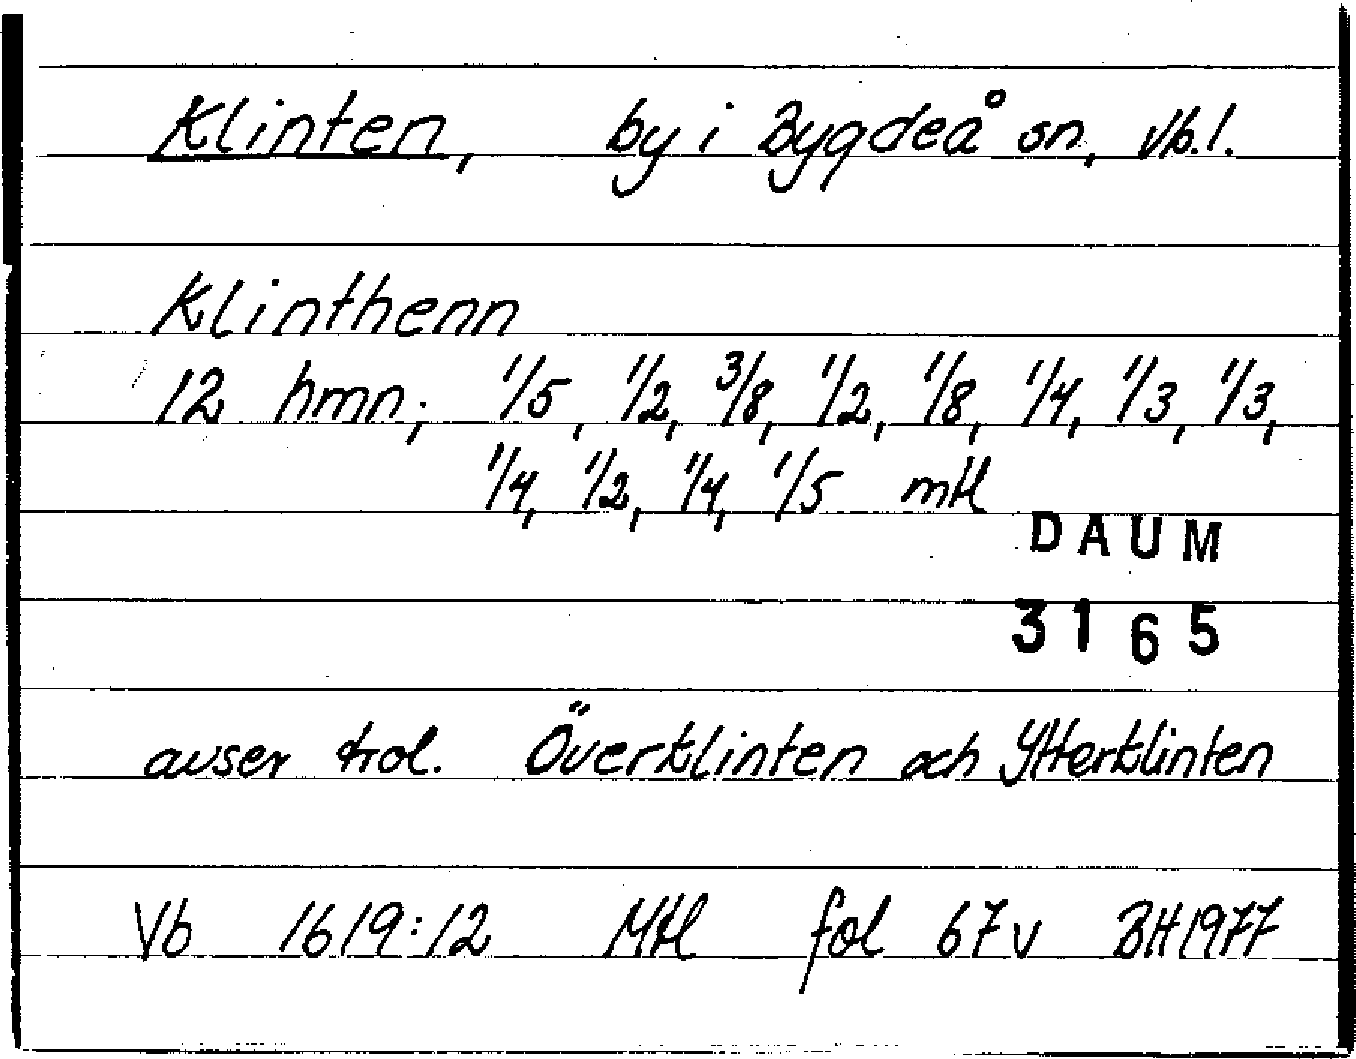 Klinten, by i Bygdeå sn, Vb.l.
Klinthenn
12 hmn; 1/5, 1/2, 3/8, 1/2, 1/8, 1/4, 1/3, 1/3,
1/4, 1/2, 1/4, 1/5 mtl
DAUM
3165
avser trol. Överklinten och Ytterklinten
Vb 1619:12 Mtl fol 67v BH1977